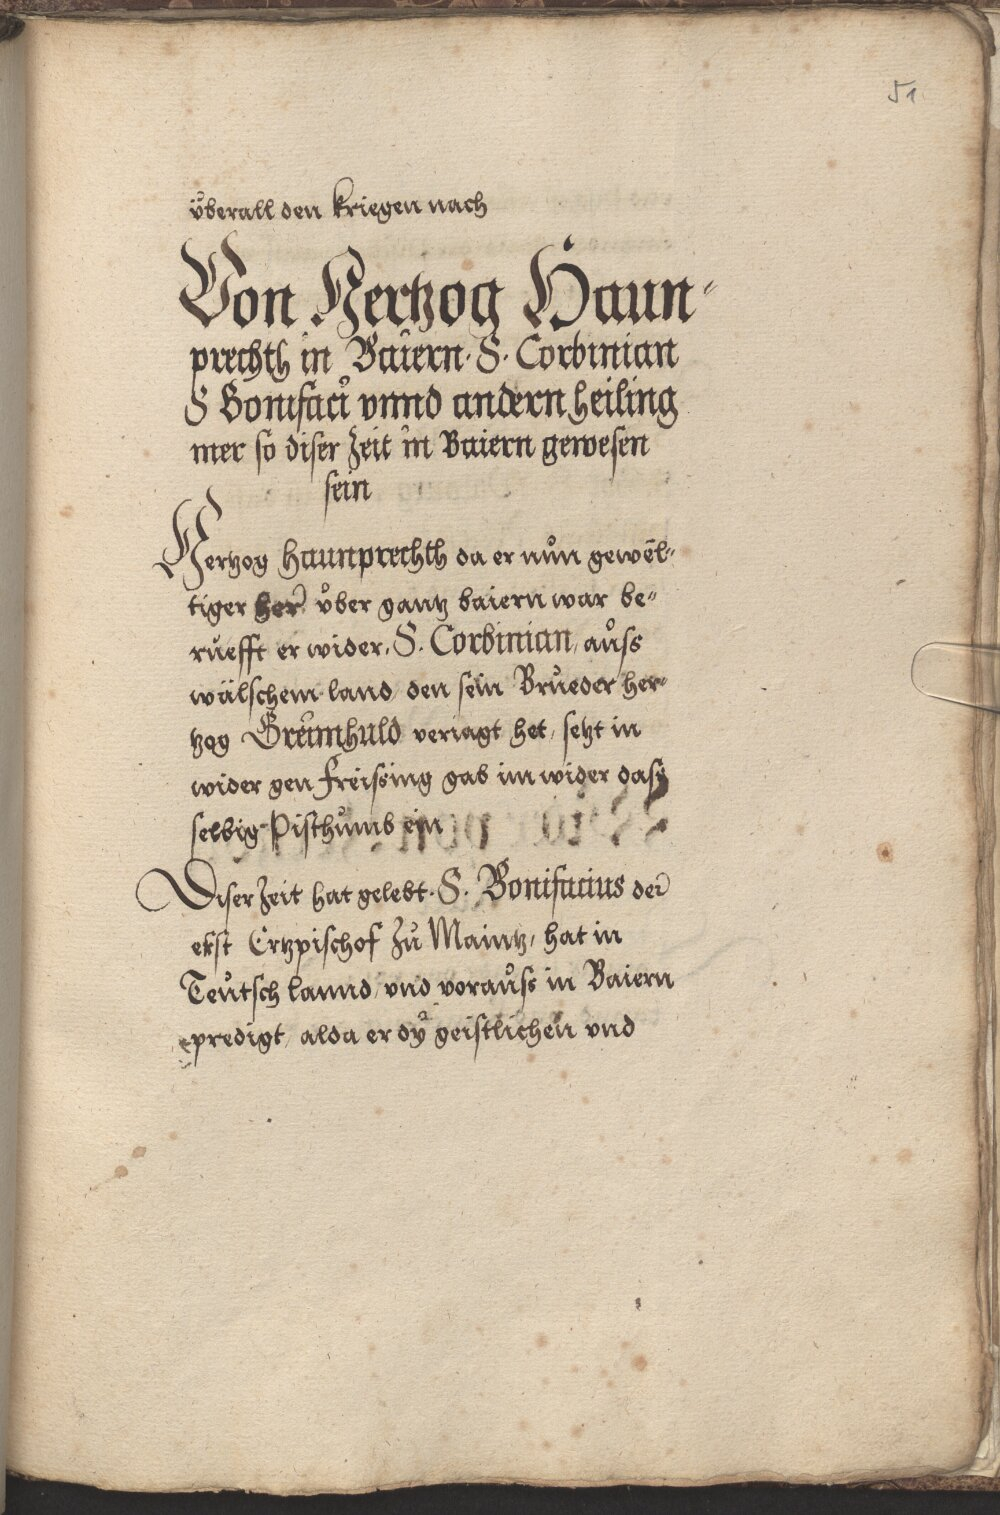 51
vͦberall den kriegen nach
Von Hertzog Haun-
prechth in Baiern. S. Corbinian
S Bonifaci vnnd andern heiling
mer so diser Zeit in Baiern gewesen
sein
Hertzog Haunprechth da er nůn gewel-
tiger her vͦber gantz baiern war be-
růefft er wider. S. Corbinian, aůss
wälschem land den sein Brůeder her-
tzog Greimhuld veriagt het, setzt in
wider gen Freissing gab im wider dass
selbig Pisthůmb ein
Diser Zeit hat gelebt. S. Bonifacius der
erst Ertzpischof Zů Maintz, hat in
Teůtsch lannd, vnd voraůss in Baiern
predigt, alda er dÿ geistlichen vnd